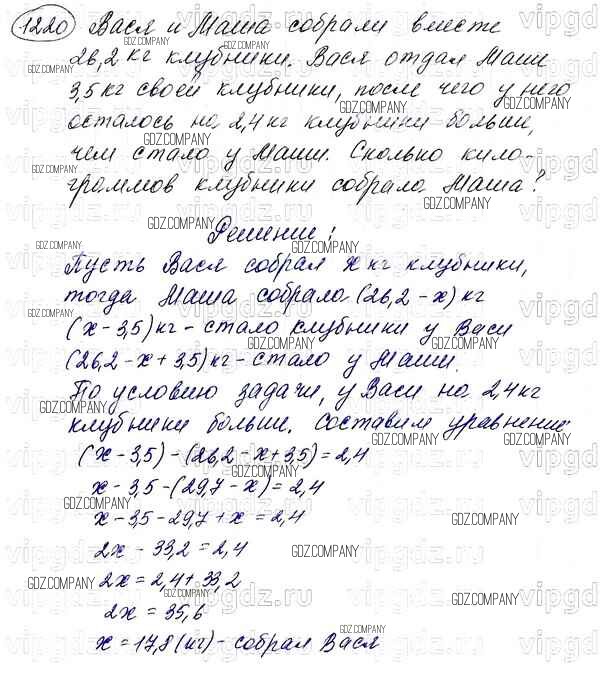 1220 Вася и Маша собрали вместе
26,2 кг клубники. Вася отдал Маше
3,5 кг своей клубники, после чего у него
осталось на 2,4 кг клубники больше,
чем стало у Маши. Сколько кило-
граммов клубники собрала Маша?
Решение:
Пусть Вася собрал x кг клубники,
тогда Маша собрала (26,2 - x) кг
(x - 3,5) кг - стало клубники у Васи
(26,2 - x + 3,5) кг - стало у Маши.
По условию задачи, у Васи на 2,4 кг
клубники больше. Составим уравнение:
(x - 3,5) - (26,2 - x + 3,5) = 2,4
x - 3,5 - (29,7 - x) = 2,4
x - 3,5 - 29,7 + x = 2,4
2x - 33,2 = 2,4
2x = 2,4 + 33,2
2x = 35,6
x = 17,8 (кг) - собрал Вася